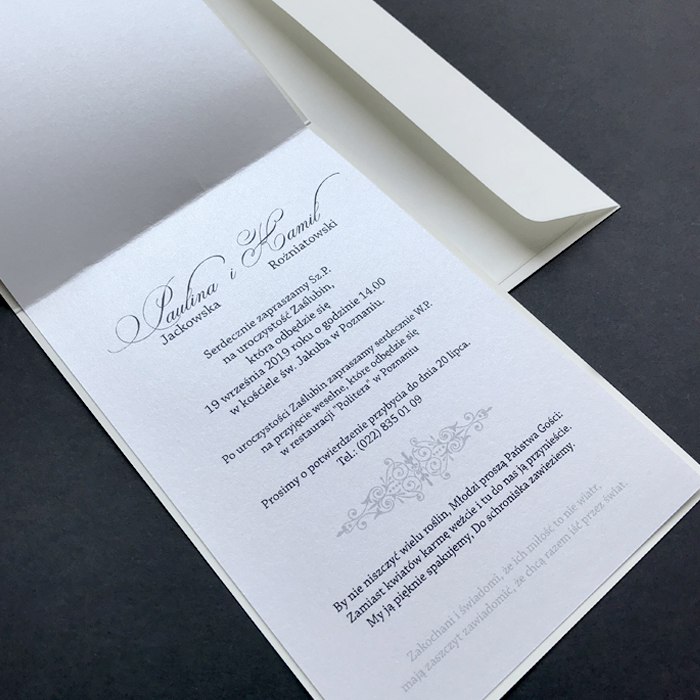 Paulina i Kamil
Jackowska Rożniatowski
Serdecznie zapraszamy Sz.P.
na uroczystość Zaślubin,
która odbędzie się
19 września 2019 roku o godzinie 14.00
w kościele św. Jakuba w Poznaniu.
Po uroczystości Zaślubin zapraszamy serdecznie W.P.
na przyjęcie weselne, które odbędzie się
w restauracji "Politera" w Poznaniu
Prosimy o potwierdzenie przybycia do dnia 20 lipca.
Tel.: (022) 835 01 09
By nie niszczyć wielu roślin, Młodzi proszą Państwa Gości:
Zamiast kwiatów karmę weźcie i tu do nas ją przynieście.
My ją pięknie spakujemy, Do schroniska zawieziemy.
Zakochani i świadomi, że ich miłość to nie wiatr,
mają zaszczyt zawiadomić, że chcą razem iść przez świat.